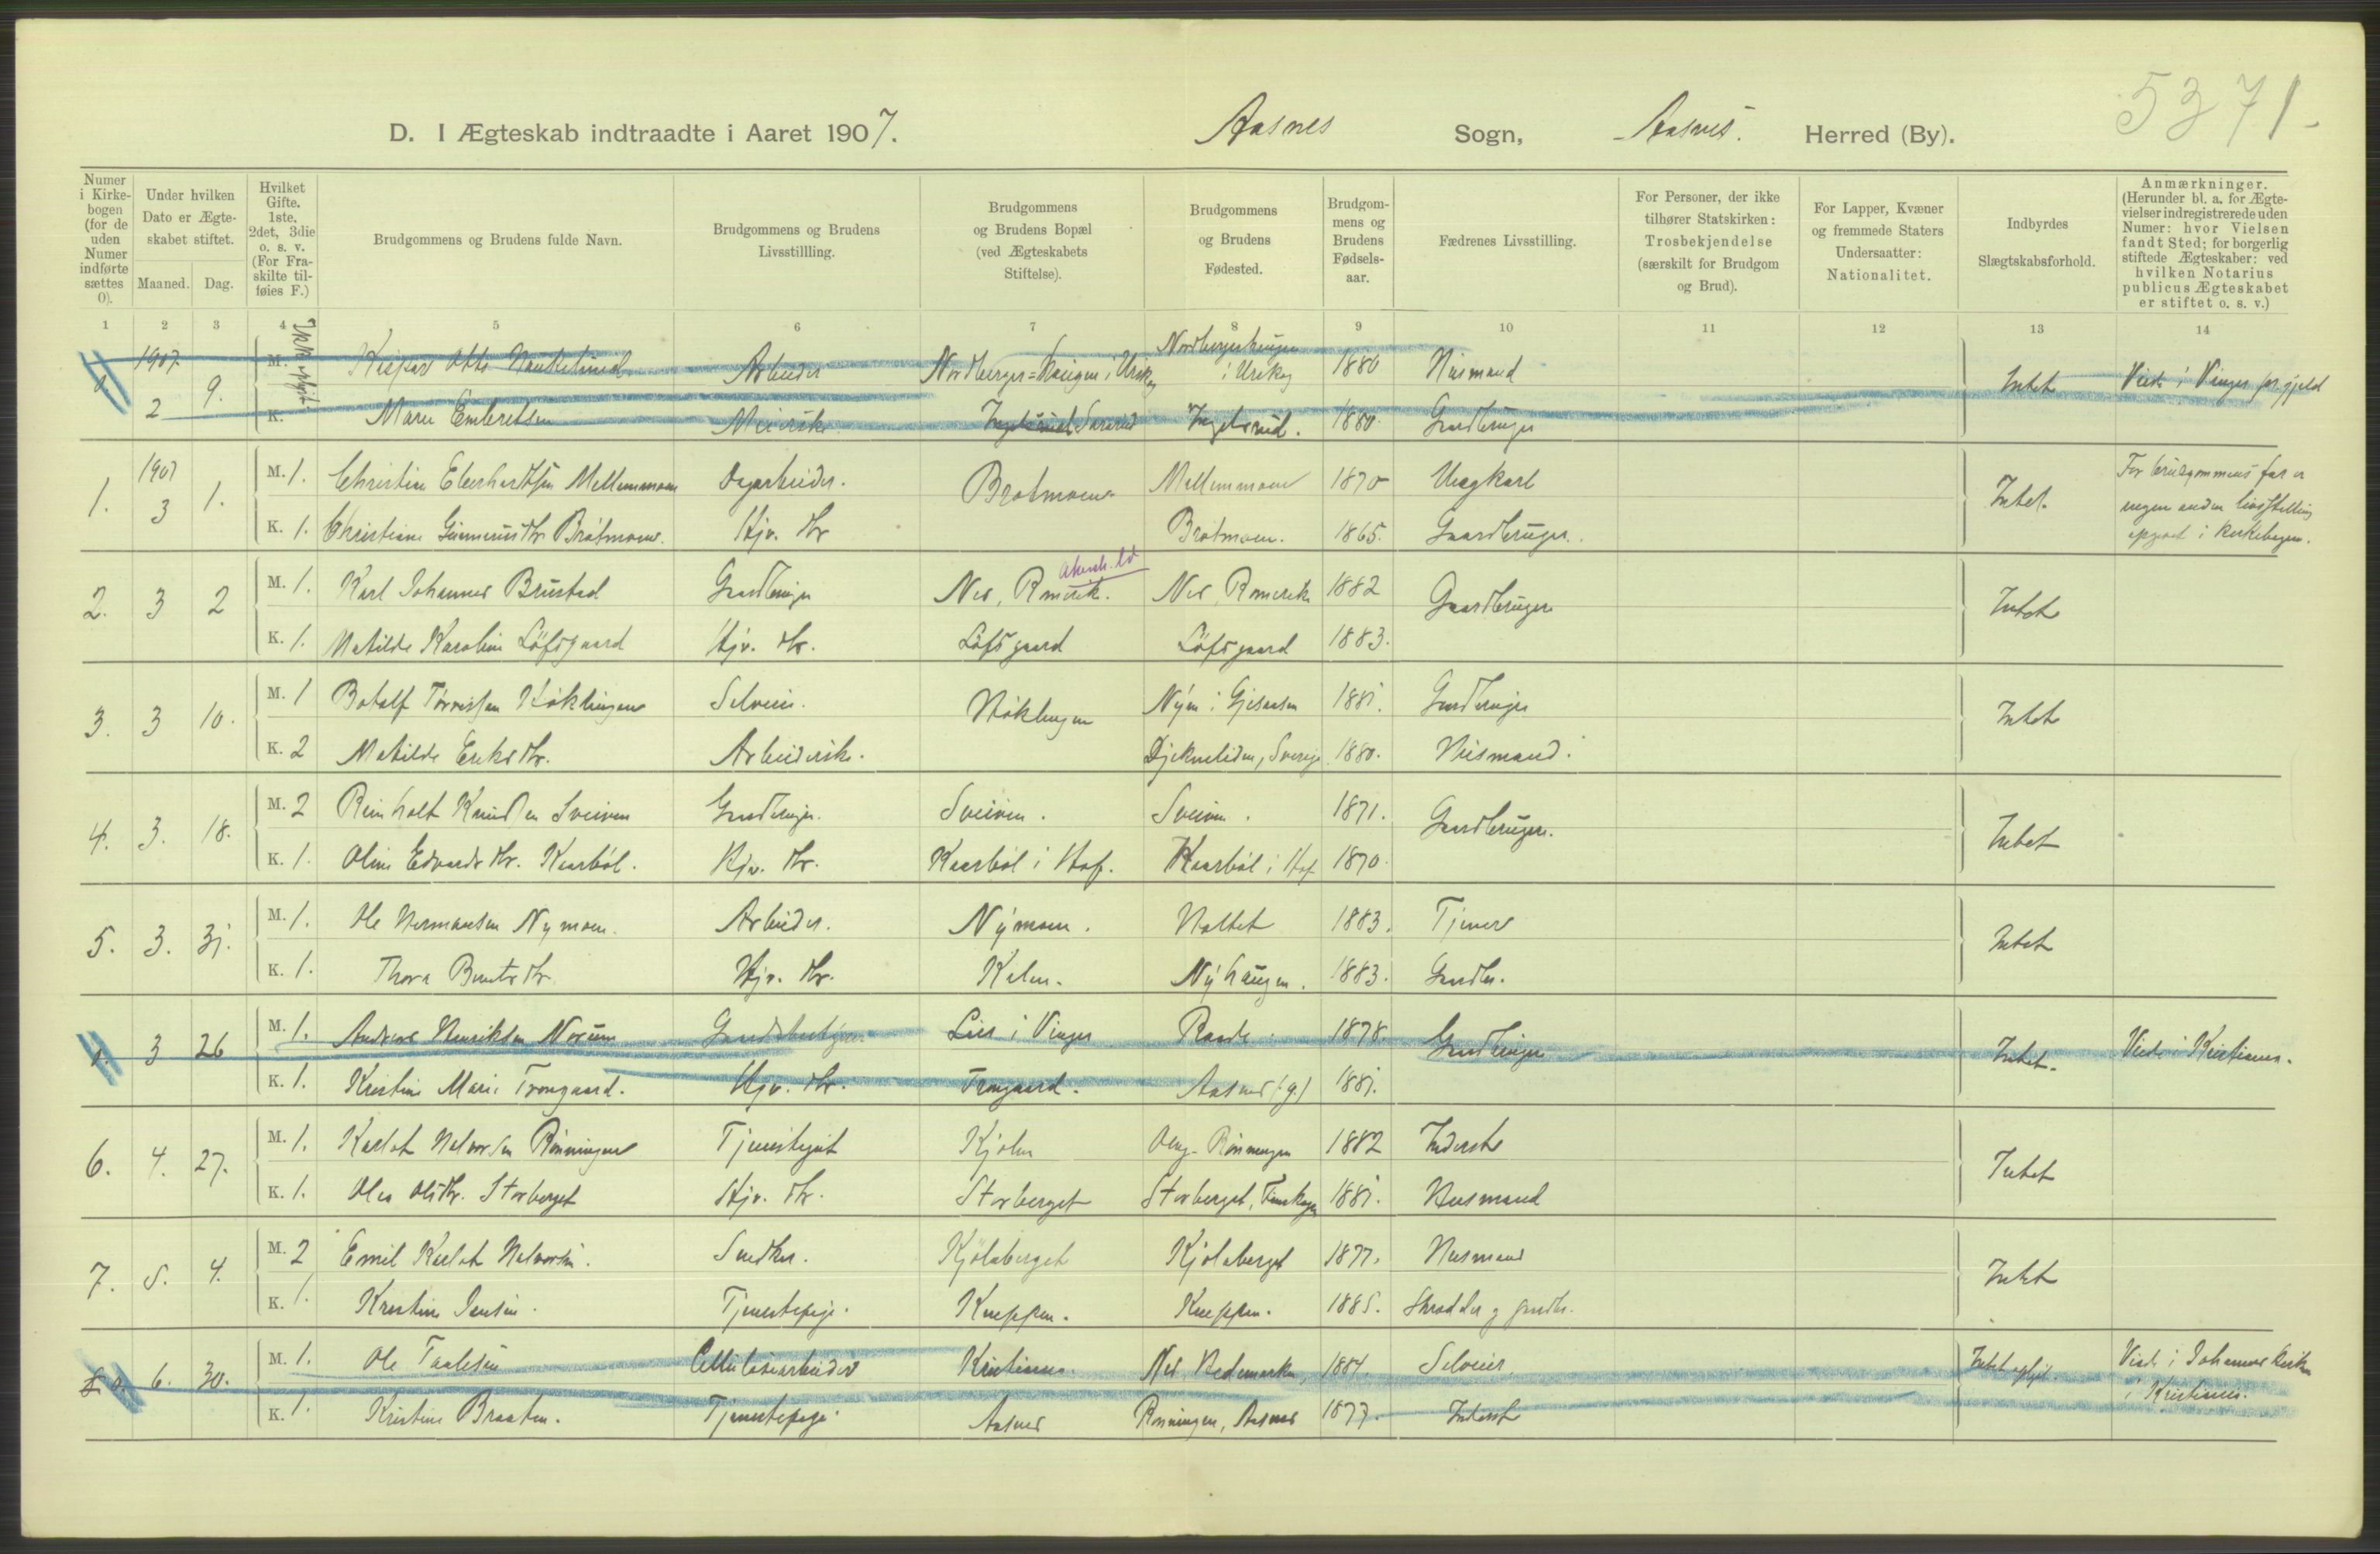 5371
D. I Ægteskab indtraadte i Aaret 1907. Aasnes Sogn, Aasnes. Herred (By).
Numer i Kirke-bogen (for de uden Numer indførte sættes 0).
Under hvilken Dato er Ægte-skabet stiftet.
Maaned. Dag.
Hvilket Gifte. 1ste, 2det, 3die o. s. v. (For Fra-skilte til-føies F.)
Brudgommens og Brudens fulde Navn.
Brudgommens og Brudens Livsstillling.
Brudgommens og Brudens Bopæl (ved Ægteskabets Stiftelse).
Brudgommens og Brudens Fødested.
Brudgom-mens og Brudens Fødsels-aar.
Fædrenes Livsstilling.
For Personer, der ikke tilhører Statskirken: Trosbekjendelse (særskilt for Brudgom og Brud).
For Lapper, Kvæner og fremmede Staters Undersaatter: Nationalitet.
Indbyrdes Slægtskabsforhold.
Anmærkninger. (Herunder bl. a. for Ægte-vielser indregistrerede uden Numer: hvor Vielsen fandt Sted; for borgerlig stiftede Ægteskaber: ved hvilken Notarius publicus Ægteskabet er stiftet o. s. v.)
1 2 3 4 5 6 7 8 9 10 11 12 13 14
0. 1907. 2 9. M. Otto Arbeider i Urskog i Urskog 1880 Husmand Intet Viede i Vinger
K. Marie Embretsen Meierske Ingelsrud. 1880. Gaardbruger
1. 1907 3 1. M. 1. Christian Mellemmoen Dagarbeider. Bråtmoen Mellemmoen 1870 Intet. For brudgommens far er
K. 1. Christiane Gunnerusdtr Bråtmoen. Hjv. dtr Bråtmoen. 1865. Gaardbruger. ingen anden livsstilling
opgivet i kirkebogen.
2. 3 2 M. 1. Karl Johannes Brustad Gaardbruger Nes, Romerike. Nes, Romerike 1882 Gaardbrugere Intet
K. 1. Matilde Karoline Löfsgaard Hjv. dtr. Löfsgaard Löfsgaard 1883.
3. 3 10. M. 1 Botolf Selveier. 1881. Gaardbruger Intet
K. 2 Matilde Eriksdtr. Arbeiderske. Sverige 1880. Husmand.
4. 3. 18. M. 2 Reinholt Knudsen Sveiven Gaardbruger. Sveiven. Sveiven. 1871. Gaardbrugere. Intet
K. 1. Oline Edvardsdtr. Kaarböl. Hjv. dtr. Kaarböl i Hof. Kaarböl i Hof 1870.
5. 3. 31. M. 1. Ole Hermansen Nymoen. Arbeider. Nymoen. Holtet 1883. Tjener Intet
K. 1. Thora Berntsdtr. Hjv. dtr. Kolen. Nyhaugen. 1883. Gaardbr.
0. 3 26 M. 1. Andreas Henriksen Norum Lier i Vinger Raade 1878. Gaardbruger Intet. Viede i Kristiania.
K. 1. Kristine Marie Trongaard. Hjv. dtr. Trongaard. Aasnes (.g.) 1881.
6. 4. 27. M. 1. Karlot Halvorsen Rönningen Tjenestegut Kjölen Rönningen 1882 Inderst Intet
K. 1. Olea Olsdtr. Storberget Hjv. dtr. Storberget Storberget, Finskogen 1881. Husmand
7. 5. 4. M. 2 Emil Karlot Halvorsen. Snedker. Kjölaberget Kjölaberget 1877. Husmand Intet
K. 1. Kristine Jensen. Tjenestepige. Kneppen. Kneppen. 1885. Skrædder og gaardbr.
0. 6. 30. M. 1. Ole Taalesen Cellulosearbeider Kristiania Nes, Hedemarken, 1884. Selveier Intet opgit. Viede i Johannes kirke
K. 1. Kristine Braaten. Tjenestepige Aasnes Rönningen, Aasnes 1877. Inderst i Kristiania.